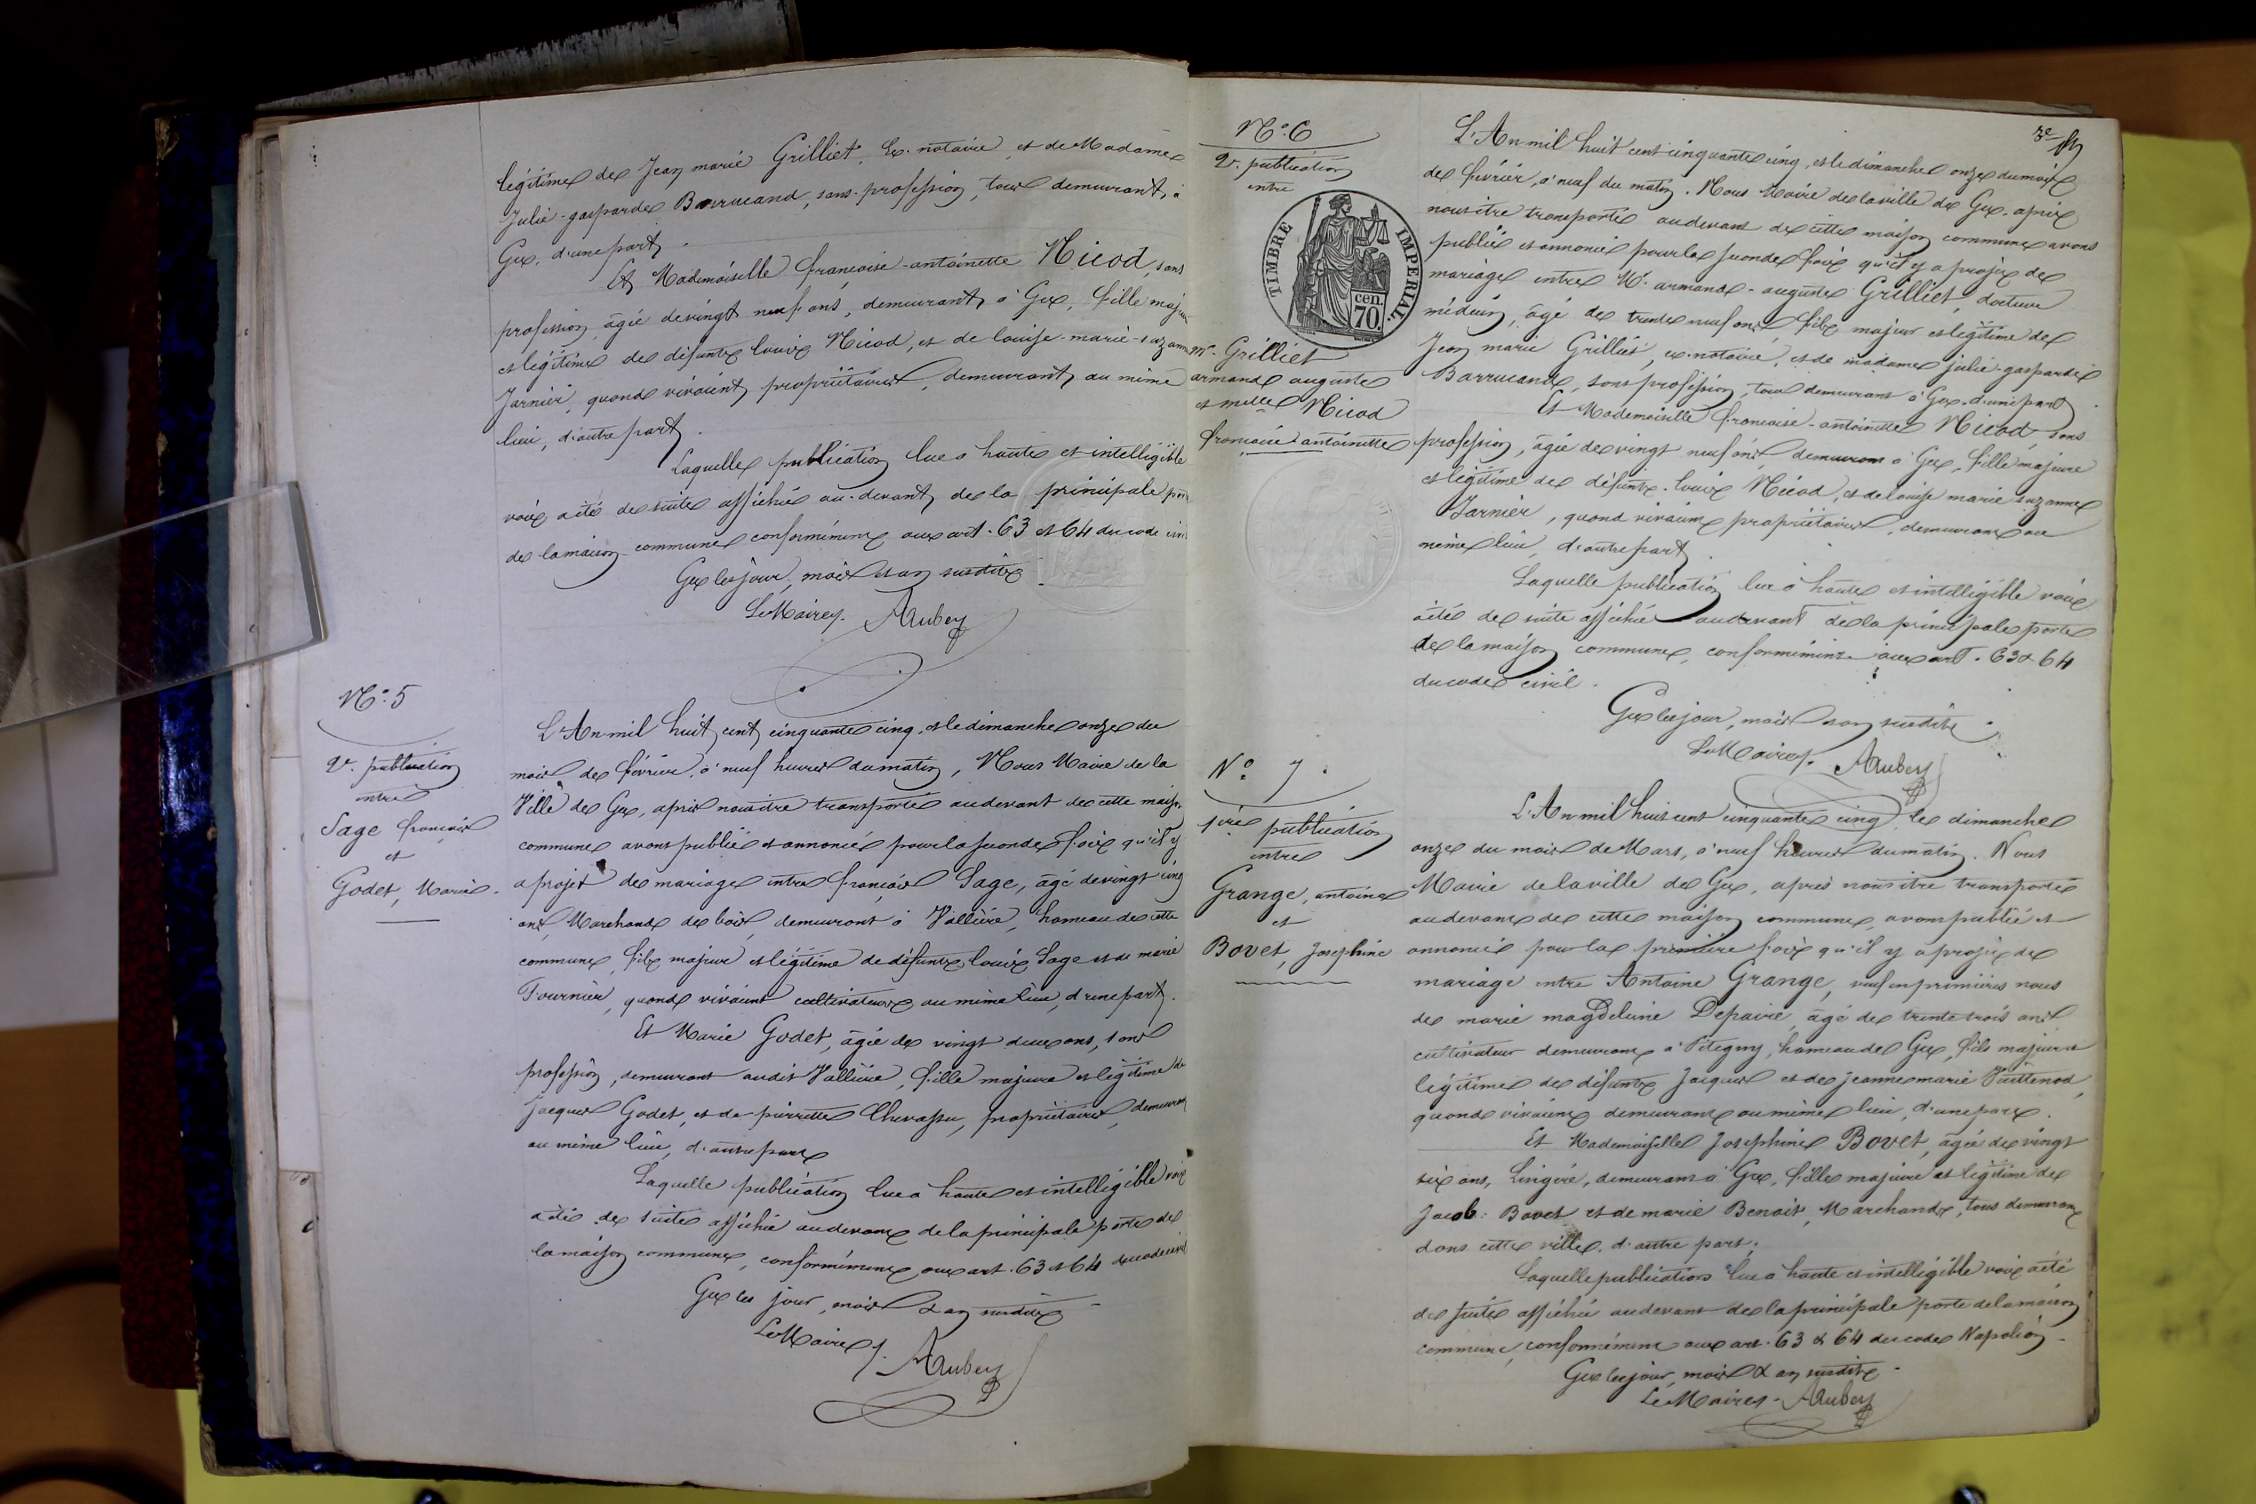 légitime de Jean marie Grilliet, Ex. notaire, et de Madame
Julie-gasparde Barrucand, sans profession, tous demeurant à
Gex, d'une part.
Et Mademoiselle françoise-antoinette Nicod, sans
profession, âgée de vingt neuf ans, demeurant à Gex, fille majeure
et légitime de défunts louis Nicod, et de louise-marie-suzanne
Jarnier, quand vivaient propriétaires, demeurant au même
lieu, d'autre part.
Laquelle publication lue à haute et intelligible
voix a été de suite affichée au-devant de la principale porte
de la maison commune conformément aux art. 63 et 64 du code civil
Gex les jour, mois et an susdits
Le Maire, Aubery
N°. 5
2e. publication
entre
Sage françois
et
Godet, Marie.
L'An mil huit cent cinquante cinq, et le dimanche onze du
mois de février, à neuf heures du matin, Nous Maire de la
Ville de Gex, après nous être transporté au devant de cette maison
commune avons publié et annoncé pour la seconde fois qu'il y
a projet de mariage entre françois Sage, âgé de vingt cinq
ans, Marchand de bois, demeurant à Vallière, hameau de cette
commune, fils majeur et légitime de défunts louis Sage et de marie
Fournier, quand vivaient cultivateurs au même lieu, d'une part.
Et Marie Godet, âgée de vingt deux ans, sans
profession, demeurant audit Vallière, fille majeure et légitime de
Jacques Godet, et de pierrette Chavassu, propriétaires, demeurant
au même lieu, d'autre part
Laquelle publication lue à haute et intelligible voix
a été de suite affichée au devant de la principale porte de
la maison commune, conformément aux art. 63 et 64 du code civil
Gex les jour, mois & an susdits
Le Maire, Aubery
3e
N°. 6
2e. publication
entre
TIMBRE IMPERIAL.
cen.
70.
Mr. Grilliet
armand auguste
et melle Nicod
françoise antoinette
L'An mil huit cent cinquante cinq, et le dimanche onze du mois
de février, à neuf du matin. Nous Maire de la ville de Gex, après
nous être transporté au devant de cette maison commune avons
publié et annoncé pour la seconde fois qu'il y a projet de
mariage entre Mr. armand-auguste Grilliet, docteur
médecin, âgé de trente neuf ans, fils majeur et légitime de
Jean marie Grilliet, ex-notaire, et de madame julie-gasparde
Barrucand, sans profession, tous demeurant à Gex, d'une part.
Et Mademoiselle françoise-antoinette Nicod, sans
profession, âgée de vingt neuf ans, demeurant à Gex, fille majeure
et légitime de défunts louis Nicod, et de louise marie suzanne
Jarnier, quand vivaient propriétaires, demeurant au
même lieu, d'autre part.
Laquelle publication lue à haute et intelligible voix
a été de suite affichée au devant de la principale porte
de la maison commune, conformément aux art. 63 & 64
du code civil.
Gex les jour, mois & an susdits.
Le Maire, Aubery
N° 7.
1ère publication
entre
Grange, antoine
et
Bovet, Josephine
L'An mil huit cent cinquante cinq, le dimanche
onze du mois de Mars, à neuf heures du matin. Nous
Maire de la ville de Gex, après nous être transporté
au devant de cette maison commune, avons publié et
annoncé pour la première fois qu'il y a projet de
mariage entre Antoine Grange, veuf en premières noces
de marie magdeleine Depairé, âgé de trente trois ans
cultivateur demeurant à Pitegny, hameau de Gex, fils majeur et
légitime de défunts Jacques et de jeanne marie Vuittenod,
quand vivaient demeurant au même lieu, d'une part.
Et Mademoiselle Josephine Bovet, âgée de vingt
six ans, Lingère, demeurant à Gex, fille majeure et légitime de
Jacob Bovet et de marie Benoit, Marchands, tous demeurant
dans cette ville, d'autre part.
Laquelle publication lue à haute et intelligible voix a été
de suite affichée au devant de la principale porte de la maison
commune, conformément aux art. 63 & 64 du code Napoléon.
Gex les jour, mois & an susdits.
Le Maire, Aubery